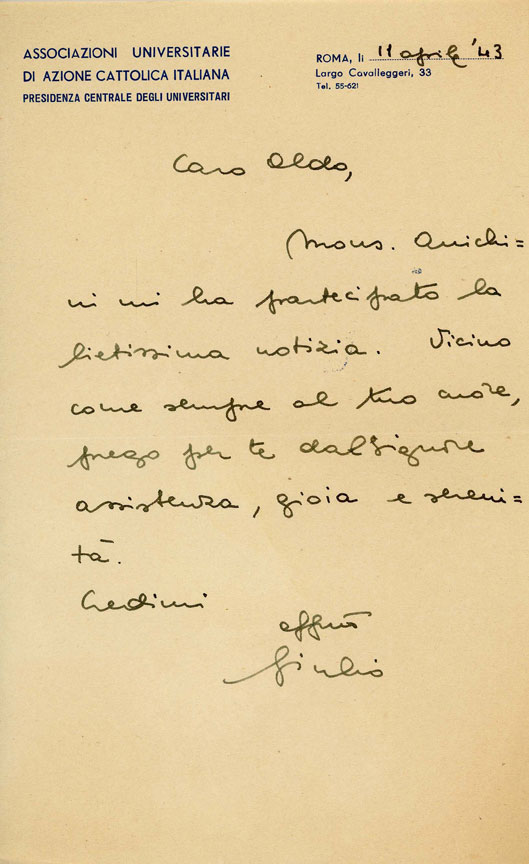 ASSOCIAZIONI UNIVERSITARIE
DI AZIONE CATTOLICA ITALIANA
PRESIDENZA CENTRALE DEGLI UNIVERSITARI
ROMA, li 11 aprile '43
Largo Cavalleggeri, 33
Tel. 55-621
Caro Aldo,
Mons. Anichi=
ni mi ha partecipato la
lietissima notizia. Vicino
come sempre al tuo cuore,
prego per te dal Signore
assistenza, gioia e sereni-
tà.
Credimi
aff.mo
Giulio